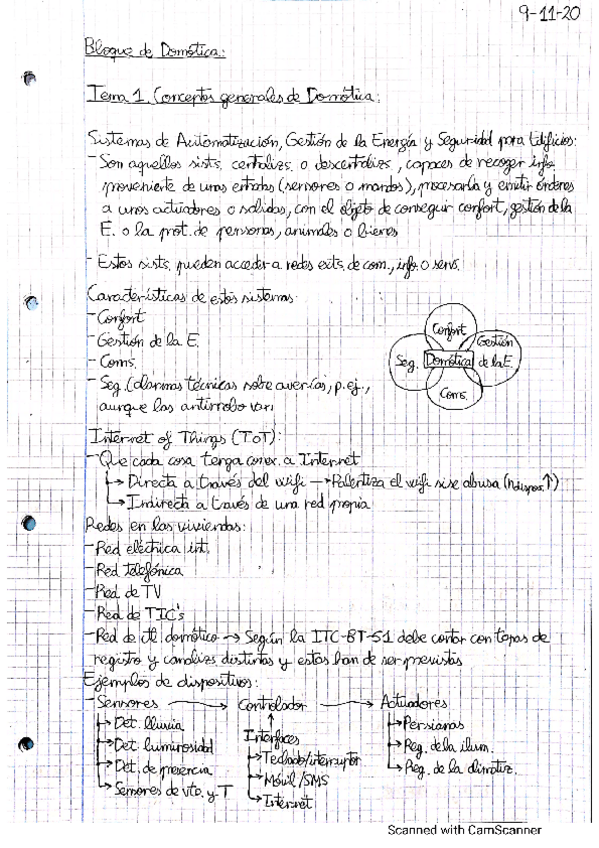 9-11-20
Bloque de Domótica:
Tema 1. Conceptos generales de Domótica:
Sistemas de Automatización, Gestión de la Energía y Seguridad para Edificios:
- Son aquellos sists. centralizs. o descentralizs., capaces de recoger info.
proveniente de unas entradas (sensores o mandos), procesarla y emitir órdenes
a unos actuadores o salidas, con el objeto de conseguir confort, gestión de la
E. o la prot. de personas, animales o bienes
- Estos sists. pueden acceder a redes exts. de com., info. o servs.
Características de estos sistemas:
- Confort
- Gestión de la E.
- Coms.
- Seg. (alarmas técnicas sobre averías, p.ej.,
aunque las antirrobo van
Confort
Seg. Domótica Gestión de la E.
Coms.
Internet of Things (IoT):
- Que cada cosa tenga conex. a Internet
→ Directa a través del wifi → Ralentiza el wifi si se abusa (n dispos. ↑)
→ Indirecta a través de una red propia
Redes en las viviendas:
- Red eléctrica int.
- Red telefónica
- Red de TV
- Red de TIC's
- Red de ctl. domótico → Según la ITC-BT-51 debe contar con tapas de
registro y canalizs distintas y estas han de ser previstas
Ejemplos de dispositivos:
- Sensores → Controlador → Actuadores
→ Det. lluvia
→ Det. luminosidad
→ Det. de presencia
→ Sensores de vto. y T
Interfaces
→ Teclado/interruptor
→ Móvil/SMS
→ Internet
→ Persianas
→ Reg. de la ilum.
→ Reg. de la climatiz.
Scanned with CamScanner